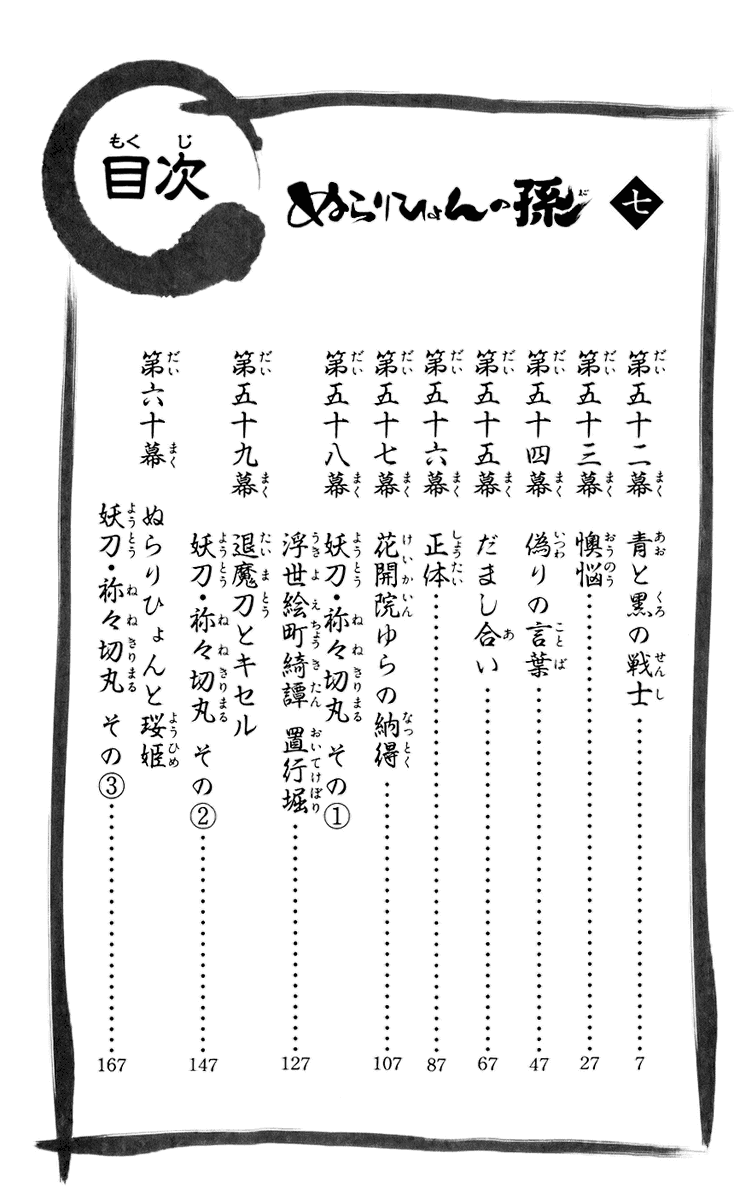 目次
ぬらりひょんの孫 七
第五十二幕 青と黒の戦士 7
第五十三幕 懊悩 27
第五十四幕 偽りの言葉 47
第五十五幕 だまし合い 67
第五十六幕 正体 87
第五十七幕 花開院ゆらの納得 107
第五十八幕 妖刀・祢々切丸 その①
浮世絵町綺譚 置行堀 127
第五十九幕 退魔刀とキセル
妖刀・祢々切丸 その② 147
第六十幕 ぬらりひょんと珱姫
妖刀・祢々切丸 その③ 167